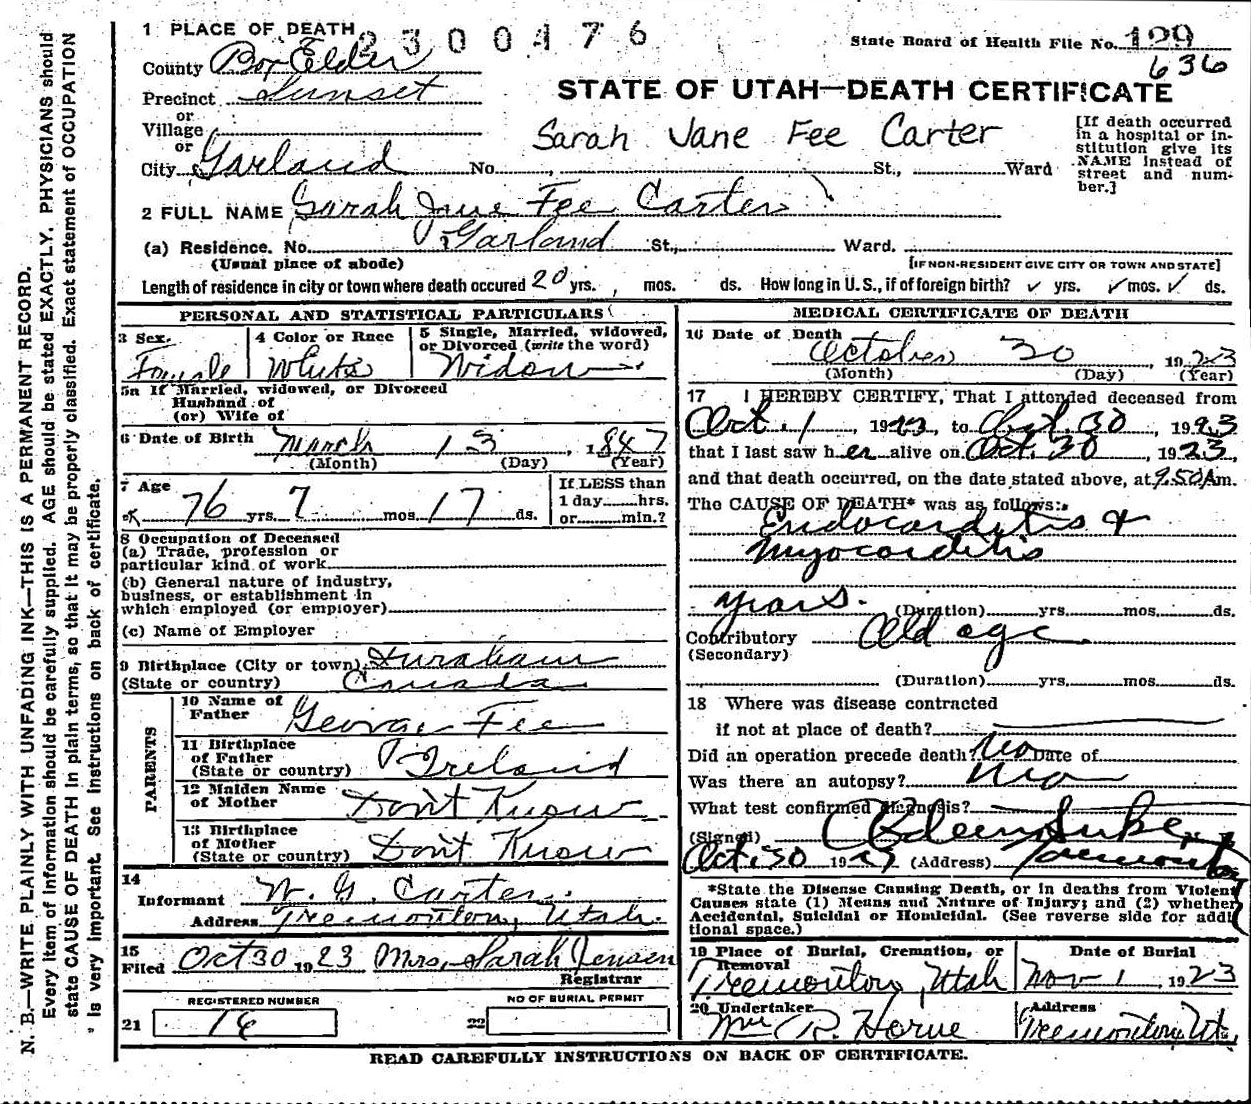 1 PLACE OF DEATH 2300476
State Board of Health File No. 129
636
County Box Elder
Precinct Sunset
or
Village
or
City Garland No. St., Ward
STATE OF UTAH—DEATH CERTIFICATE
Sarah Jane Fee Carter
[If death occurred
in a hospital or in-
stitution give its
NAME instead of
street and num-
ber.]
2 FULL NAME Sarah Jane Fee Carter
(a) Residence. No. Garland St., Ward.
(Usual place of abode) [IF NON-RESIDENT GIVE CITY OR TOWN AND STATE]
Length of residence in city or town where death occured 20 yrs. mos. ds. How long in U. S., if of foreign birth? ✓ yrs. ✓ mos. ✓ ds.
PERSONAL AND STATISTICAL PARTICULARS
3 Sex. Female
4 Color or Race White
5 Single, Married, widowed,
or Divorced (write the word)
Widow
5a If Married, widowed, or Divorced
Husband of
(or) Wife of
6 Date of Birth March 13, 1847
(Month) (Day) (Year)
7 Age 76 yrs. 7 mos. 17 ds.
If LESS than
1 day hrs.
or min.?
8 Occupation of Deceased
(a) Trade, profession or
particular kind of work
(b) General nature of industry,
business, or establishment in
which employed (or employer)
(c) Name of Employer
9 Birthplace (City or town)
(State or country) Canada
PARENTS
10 Name of
Father George Fee
11 Birthplace
of Father
(State or country) Ireland
12 Maiden Name
of Mother Don't Know
13 Birthplace
of Mother
(State or country) Dont Know
14
Informant W. G. Carter.
Address Tremonton, Utah.
15
Filed Oct 30 1923 Mrs. Sarah Jensen
Registrar
REGISTERED NUMBER
21 16
NO OF BURIAL PERMIT
22
MEDICAL CERTIFICATE OF DEATH
16 Date of Death
October 30 1923
(Month) (Day) (Year)
17 I HEREBY CERTIFY, That I attonded deceased from
Oct. 1, 1923, to Oct. 30, 1923
that I last saw her alive on Oct. 30, 1923,
and that death occurred, on the date stated above, at 9:50 Am.
The CAUSE OF DEATH* was as follows:
Endocarditis &
myocarditis
years. (Duration) yrs. mos. ds.
Contributory Old age.
(Secondary)
(Duration) yrs. mos. ds.
18 Where was disease contracted
if not at place of death?
Did an operation precede death? No Date of
Was there an autopsy? No
What test confirmed diagnosis?
(Signed)
Oct. 30 1923 (Address) Tremonton
*State the Disease Causing Death, or in deaths from Violent
Causes state (1) Means and Nature of Injury; and (2) whether
Accidental, Suicidal or Homicidal. (See reverse side for addi
tional space.)
19 Place of Burial, Cremation, or
Removal
Tremonton, Utah
Date of Burial
Nov 1 1923
20 Undertaker
Wm R. Horne
Address
Tremonton, Ut.
READ CAREFULLY INSTRUCTIONS ON BACK OF CERTIFICATE.
N. B.—WRITE PLAINLY WITH UNFADING INK—THIS IS A PERMANENT RECORD.
Every item of information should be carefully supplied. AGE should be stated EXACTLY. PHYSICIANS should
state CAUSE OF DEATH in plain terms, so that it may be properly classified. Exact statement of OCCUPATION
is very important. See instructions on back of certificate.